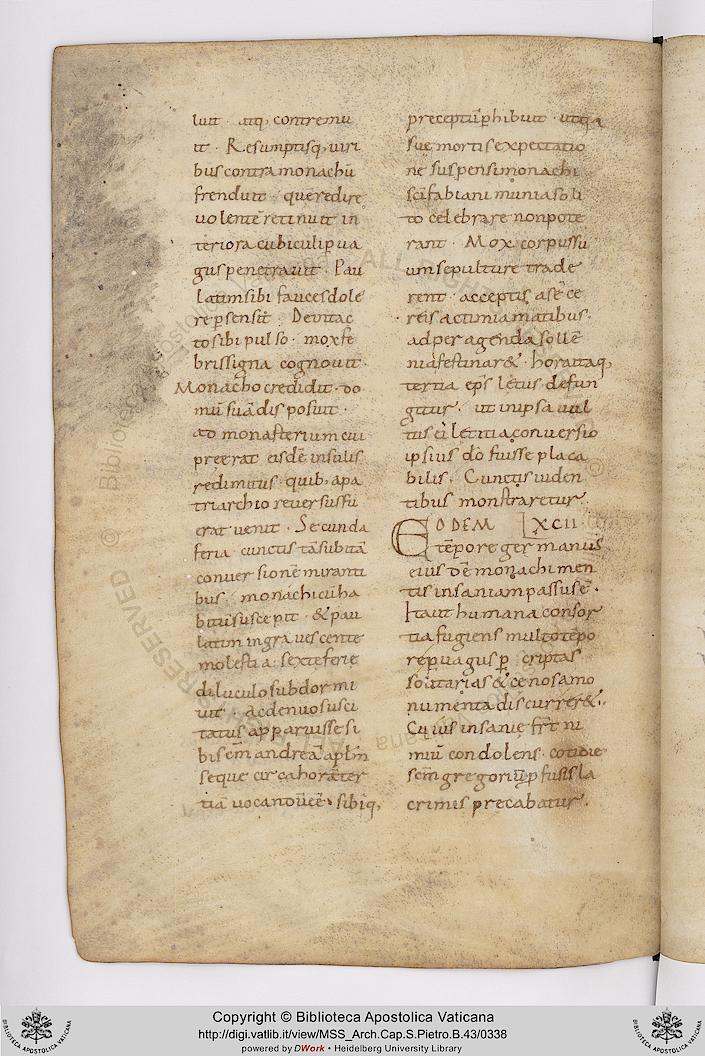 luit · atq; contremu
it · Resumptisq; viri
bus contra monachū
frenduit · que redire
uolentē retinuit in
teriora cubiculi pua
gus penetrauit · Pau
latim sibi fauces dole
re p̱sensit · Deuitac
to sibi pulso · mox fe
bris signa cognouit ·
Monacho credidit · do
mū suā disposuit ·
ad monasterium cui
preerat eisdē insulis
redimitus quib; a pa
triarchio reuersus fu
erat uenit · Secunda
feria cunctis tā subitā
conuersionē miranti
bus · monachicū ha
bitū suscepit · & pau
latim ingrauescente
molestia · sexte ferie
diluculo subdormi
uit · ac denuo susci
tatus apparuisse si
bi sc̄m andreā apl̄m
seque circa horā ter
tiā uocandū eē · sibiq;
preceptū p̱hibuit · utq;
sue mortis expectatio
ne suspensi monachi
sc̄i fabiani munia soli
to celebrare non pote
rant · Mox corpus su
um sepulture trade
rent · acceptis a sē ce
reis ac timiamatibus ·
ad peragenda sollē
nia festinar& · horaq;
tertia ep̄s letus defun
gitur · ut in ipsa uul
tus ei letitia conuersio
ipsius dō fuisse placa
bilis · Cunctis uiden
tibus monstraretur ·
EODEM XCII
tēpore germanus
eius dē monachi men
tis insaniam passus ē ·
Ita ut humana consor
tia fugiens multo tēpo
re p̱uagus p̱ criptas
solitarias & cenosa mo
numenta discurrer& ·
Cuius insanie fr̄t ni
miū condolens · cotidie
sc̄m gregoriū p̱fusis la
crimis precabatur ·
Copyright © Biblioteca Apostolica Vaticana
http://digi.vatlib.it/view/MSS_Arch.Cap.S.Pietro.B.43/0338
powered by DWork • Heidelberg University Library